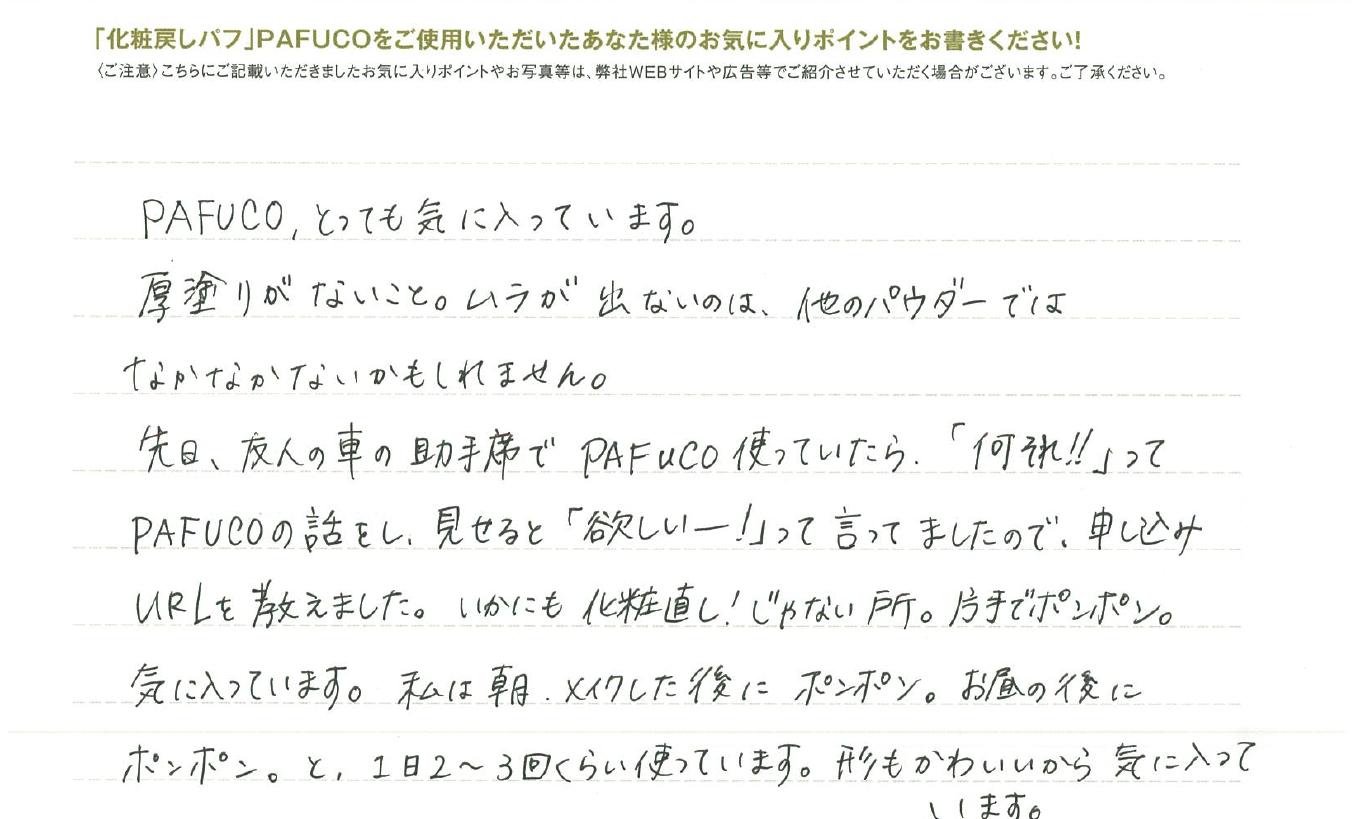 「化粧戻しパフ」PAFUCOをご使用いただいたあなた様のお気に入りポイントをお書きください!
〈ご注意〉こちらにご記載いただきましたお気に入りポイントやお写真等は、弊社WEBサイトや広告等でご紹介させていただく場合がございます。ご了承ください。
PAFUCO,とっても気に入っています。
厚塗りがないこと。ムラが出ないのは、他のパウダーでは
なかなかないかもしれません。
先日、友人の車の助手席でPAFUCO使っていたら.「何それ!!」って
PAFUCOの話をし、見せると「欲しいー!」って言ってましたので、申し込み
URLを教えました。いかにも化粧直し!じゃない所。片手でポンポン。
気に入っています。私は朝.メイクした後にポンポン。お昼の後に
ポンポン。と、1日2〜3回くらい使っています。形もかわいいから気に入って
います。